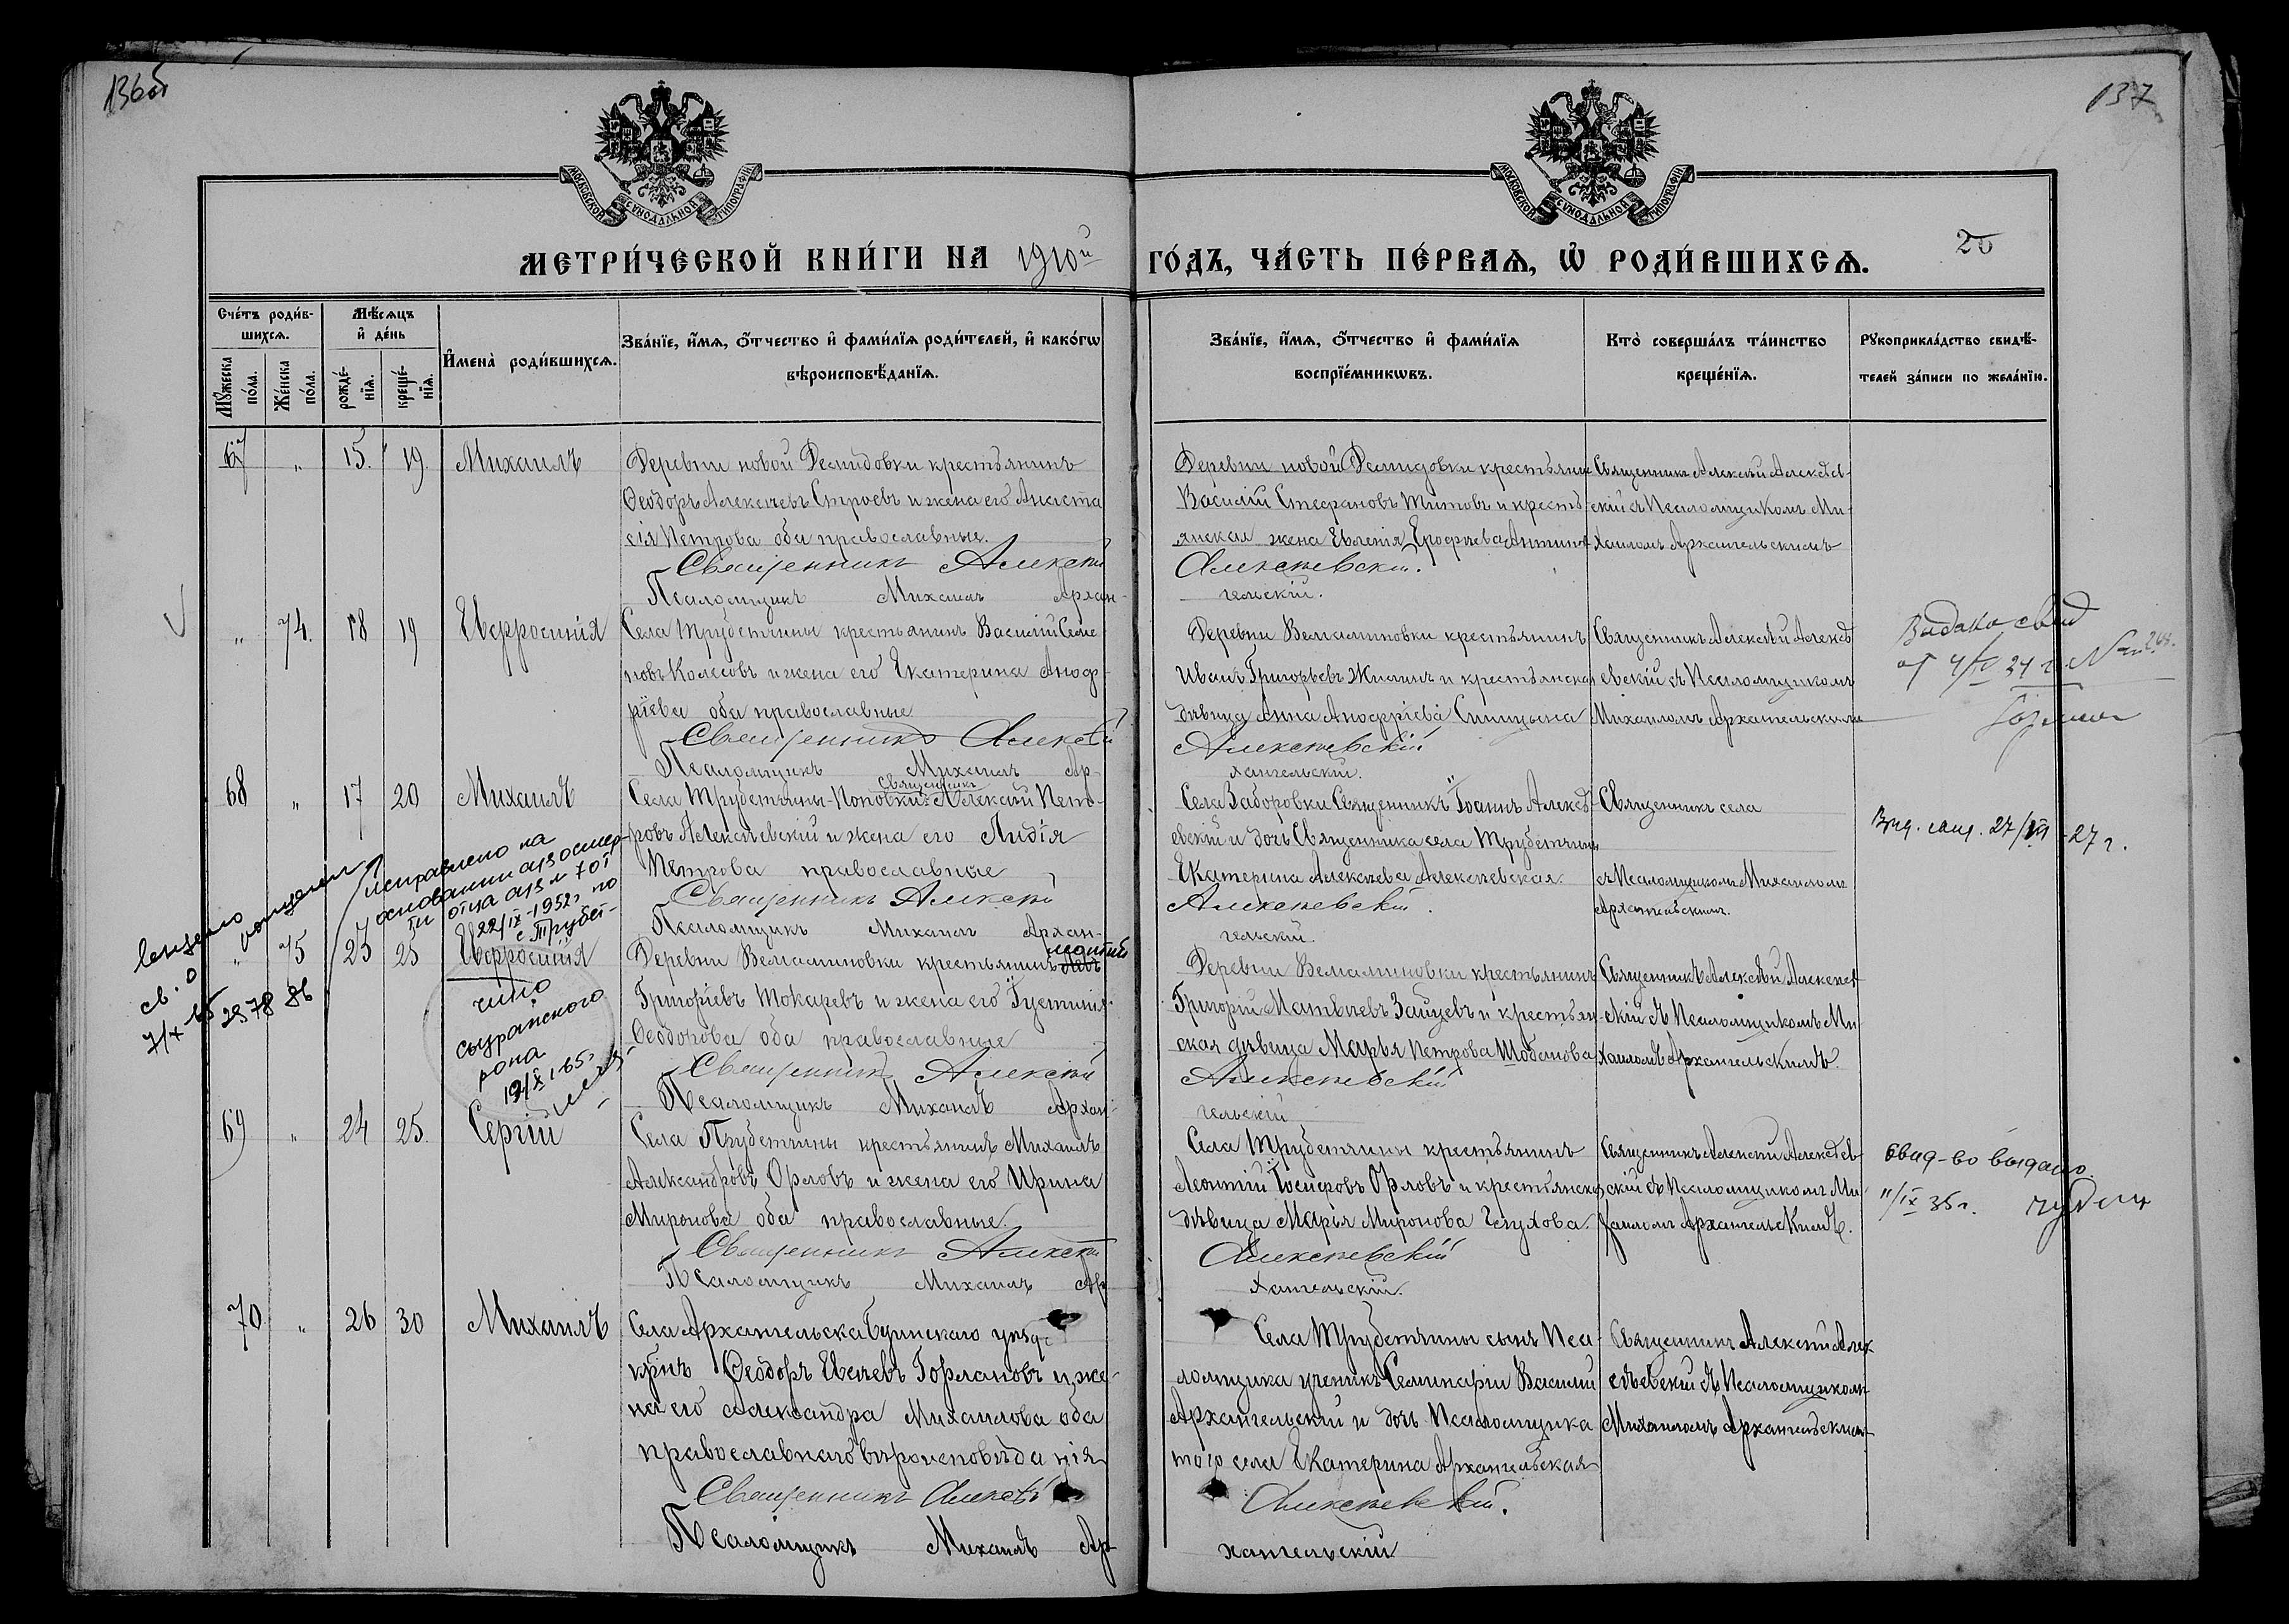 136об
137
МОСКОВСКОЙ СУНОДАЛЬНОЙ ТИПОГРАФІИ
МОСКОВСКОЙ СУНОДАЛЬНОЙ ТИПОГРАФІИ
МЕТРИ́ЧЕСКОЙ КНИ́ГИ НА 1910й ГО́ДЪ, ЧА́СТЬ ПЕ́РВАѦ, Ѡ҆ РОДИ́ВШИХСѦ.
20
Сче́тъ роди́в-
шихсѧ.
Мꙋжеска по́ла.
Же́нска по́ла.
Мѣ́сѧцъ
и҆ де́нь
рожде́-
нїѧ.
креще́-
нїѧ.
И҆мена̀ роди́вшихсѧ.
Зва́нїе, и҆́мѧ, ѻ҆́тчество и҆ фами́лїѧ роди́телей, и҆ како́гѡ
вѣроисповѣ́данїѧ.
Зва́нїе, и҆́мѧ, ѻ҆́тчество и҆ фами́лїѧ
воспрїе́мникѡвъ.
Кто̀ соверша́лъ та́инство
креще́нїѧ.
Рꙋкоприкла́дство свидѣ́-
телей за́писи по жела́нїю.
67 " 15. 19. Михаилъ
Деревни новой Демидовки крестьянинъ
Ѳеодоръ Алексѣевъ Строевъ и жена его Анаста
сія Петрова оба православные.
Священникъ Алексѣй
Псаломщикъ Михаилъ Архан-
Деревни новой Демидовки крестьянин
Василій Стефановъ Титовъ и кресть-
янская жена Евгенія Ерофѣева
Алексѣевскій.
гельскій.
Священникъ Алексѣй Алексѣев-
скій съ Псаломщикомъ Ми-
хаиломъ Архангельскимъ
" 74. 18 19 Евфросинія
Села Трубетчины крестьянинъ Василій Семе
новъ Колесовъ и жена его Екатерина Аноф-
ріева оба православные
Священникъ Алексѣй
Псаломщикъ Михаилъ Ар-
Деревни Вельяминовки крестьянинъ
Иванъ Григорьевъ Жилинъ и крестьянская
дѣвица Анна Анофріева Синицына
Алексѣевскій
хангельскій.
Священникъ Алексѣй Алексѣ
евскій съ Псаломщикомъ
Михаиломъ Архангельскимъ
Видано свид
от 4/IV 24 г.
68 " 17 20 Михаилъ
священникъ
Села Трубетчины-Поповки Алексѣй Пет-
ровъ Алексѣевскій и жена его Лидія
Петрова православные
Священникъ Алексѣй
Псаломщикъ Михаилъ Архан-
Села Заборовки Священникъ Іоаннъ Алексѣ-
евскій и дочь Священника села Трубетчины
Екатерина Алексѣева Алексѣевская.
Алексѣевскій.
гельскій.
Священникъ села
съ Псаломщикомъ Михаиломъ
Архангельскимъ.
27 г.
исправлено на
основании а/з о смер-
ти отца а/з № 70 от
22/IX-1952г по
с Трубет-
чино
сызранского
рона
" 75 23 25 Евфросинія
Деревни Вельяминовки крестьянинъ Левъ
Леонтій
Григоріевъ Токаревъ и жена его Іустинія
Ѳеодорова оба православные
Священникъ Алексѣй
Псаломщикъ Михаилъ Архан-
Деревни Вельяминовки крестьянинъ
Григорій Матвѣевъ Зайцевъ и крестьян-
ская дѣвица Марья Петрова Шобанова
Алексѣевскій
гельскій
Священникъ Алексѣй Алексѣев-
скій съ Псаломщикомъ Ми-
хаиломъ Архангельскимъ.
69 " 24 25. Сергій
Села Трубетчины крестьянинъ Михаилъ
Александровъ Орловъ и жена его Ирина
Миронова оба православные.
Священникъ Алексѣй
Псаломщикъ Михаилъ Ар
Села Трубетчины крестьянинъ
Леонтій Іосифовъ Орловъ и крестьянская
дѣвица Марья Миронова
Алексѣевскій
хангельскій.
Священникъ Алексѣй Алексѣев-
скій съ Псаломщикомъ Ми-
хаиломъ Архангельскимъ.
Свид-во выдано.
11/IX 35г.
70 " 26 30 Михаилъ
Села Архангельска Буинскаго уѣзда
Ѳеодоръ Евсѣевъ Горлановъ и же-
на его Александра Михаилова оба
православнаго вѣроисповѣданія
Священникъ Алексѣй
Псаломщикъ Михаилъ Ар
Села Трубетчины сынъ Пса-
ломщика ученикъ Семинаріи Василій
Архангельскій и дочь Псаломщика
того села Екатерина Архангельская
Алексѣевскій.
хангельскій
Священникъ Алексѣй Алек
сѣевскій съ Псаломщикомъ
Михаиломъ Архангельскимъ